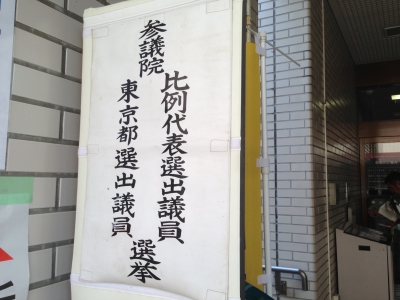 参議院
比例代表選出議員
東京都選出議員
選挙